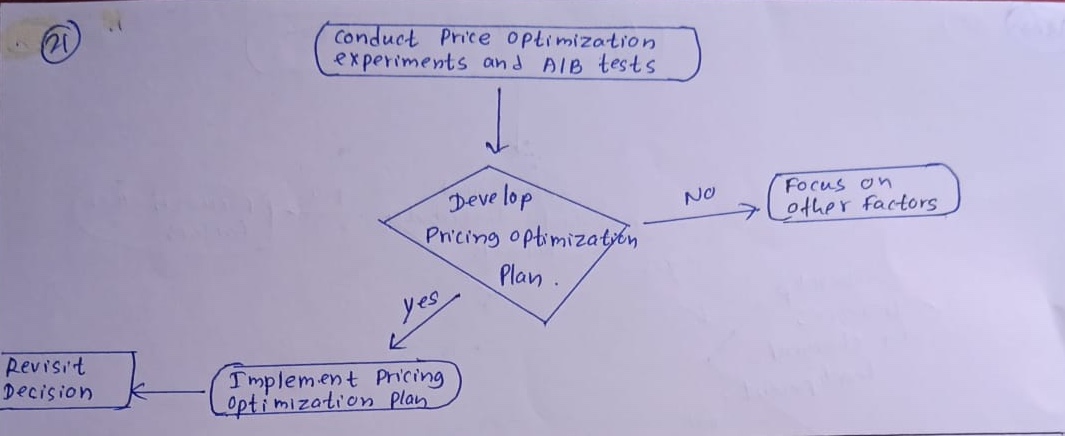 21
conduct Price optimization
experiments and A/B tests
Develop
Pricing optimization
Plan.
NO
Focus on
other factors
yes
Implement Pricing
optimization plan
Revisit
Decision